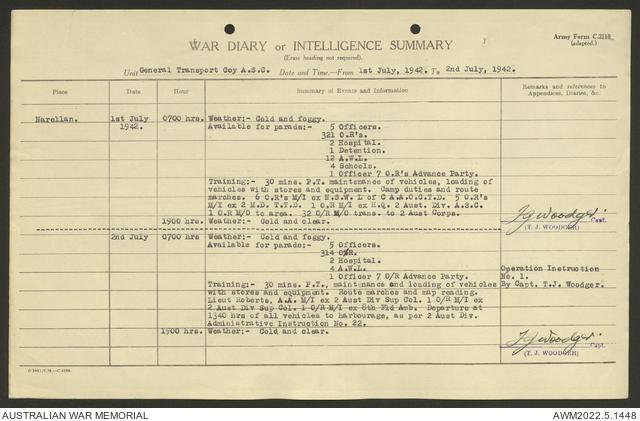 Army Form C.2118
(adapted.)
WAR DIARY or INTELLIGENCE SUMMARY
(Erase heading not required).
Unit General Transport Coy A.S.C. Date and Time.—From 1st July, 1942. To 2nd July, 1942.
Place Date Hour Summary of Events and Information Remarks and references to Appendices, Diaries, &c.
Narellan. 1st July 0700 hrs. Weather:- Cold and foggy.
1942. Available for parade:- 5 Officers.
321 O.R's.
2 Hospital.
1 Detention.
12 A.W.L.
4 Schools.
1 Officer 7 O.R's Advance Party.
Training:- 30 mins. P.T. maintenance of vehicles, loading of
vehicles with stores and equipment. Camp duties and route
marches. 6 O.R's M/I ex N.S.W. L of C A.A.O.C.T.D. 5 O.R's
M/I ex 2 M.D. T.T.D. 1 O.R M/I ex H.Q. 2 Aust. Div. A.S.C.
1 O.R M/O to area. 32 O/R M/O trans. to 2 Aust Corps.
1900 hrs. Weather:- Cold and clear.
TJ Woodger Capt.
(T. J. WOODGER)
2nd July 0700 hrs Weather:- Cold and foggy.
Available for parade:- 5 Officers
314 O/R.
2 Hospital.
4 A.W.L.
1 Officer 7 O/R Advance Party.
Training:- 30 mins. P.T., maintenance and loading of vehicles
with stores and equipment. Route marches and map reading.
Lieut Roberts, A.A. M/I ex 2 Aust Div Sup Col. 1 O/R M/I ex
2 Aust Div Sup Col. 1 O/R M/I ex 8th Fld Amb. Departure at
1340 hrs of all vehicles to harbourage, as per 2 Aust Div.
Administrative Instruction No. 22.
Operation Instruction
No. 1.
By Capt. T.J. Woodger.
1900 hrs. Weather:- Cold and clear.
TJ Woodger Capt.
(T. J. WOODGER)
AUSTRALIAN WAR MEMORIAL
AWM2022.5.1448